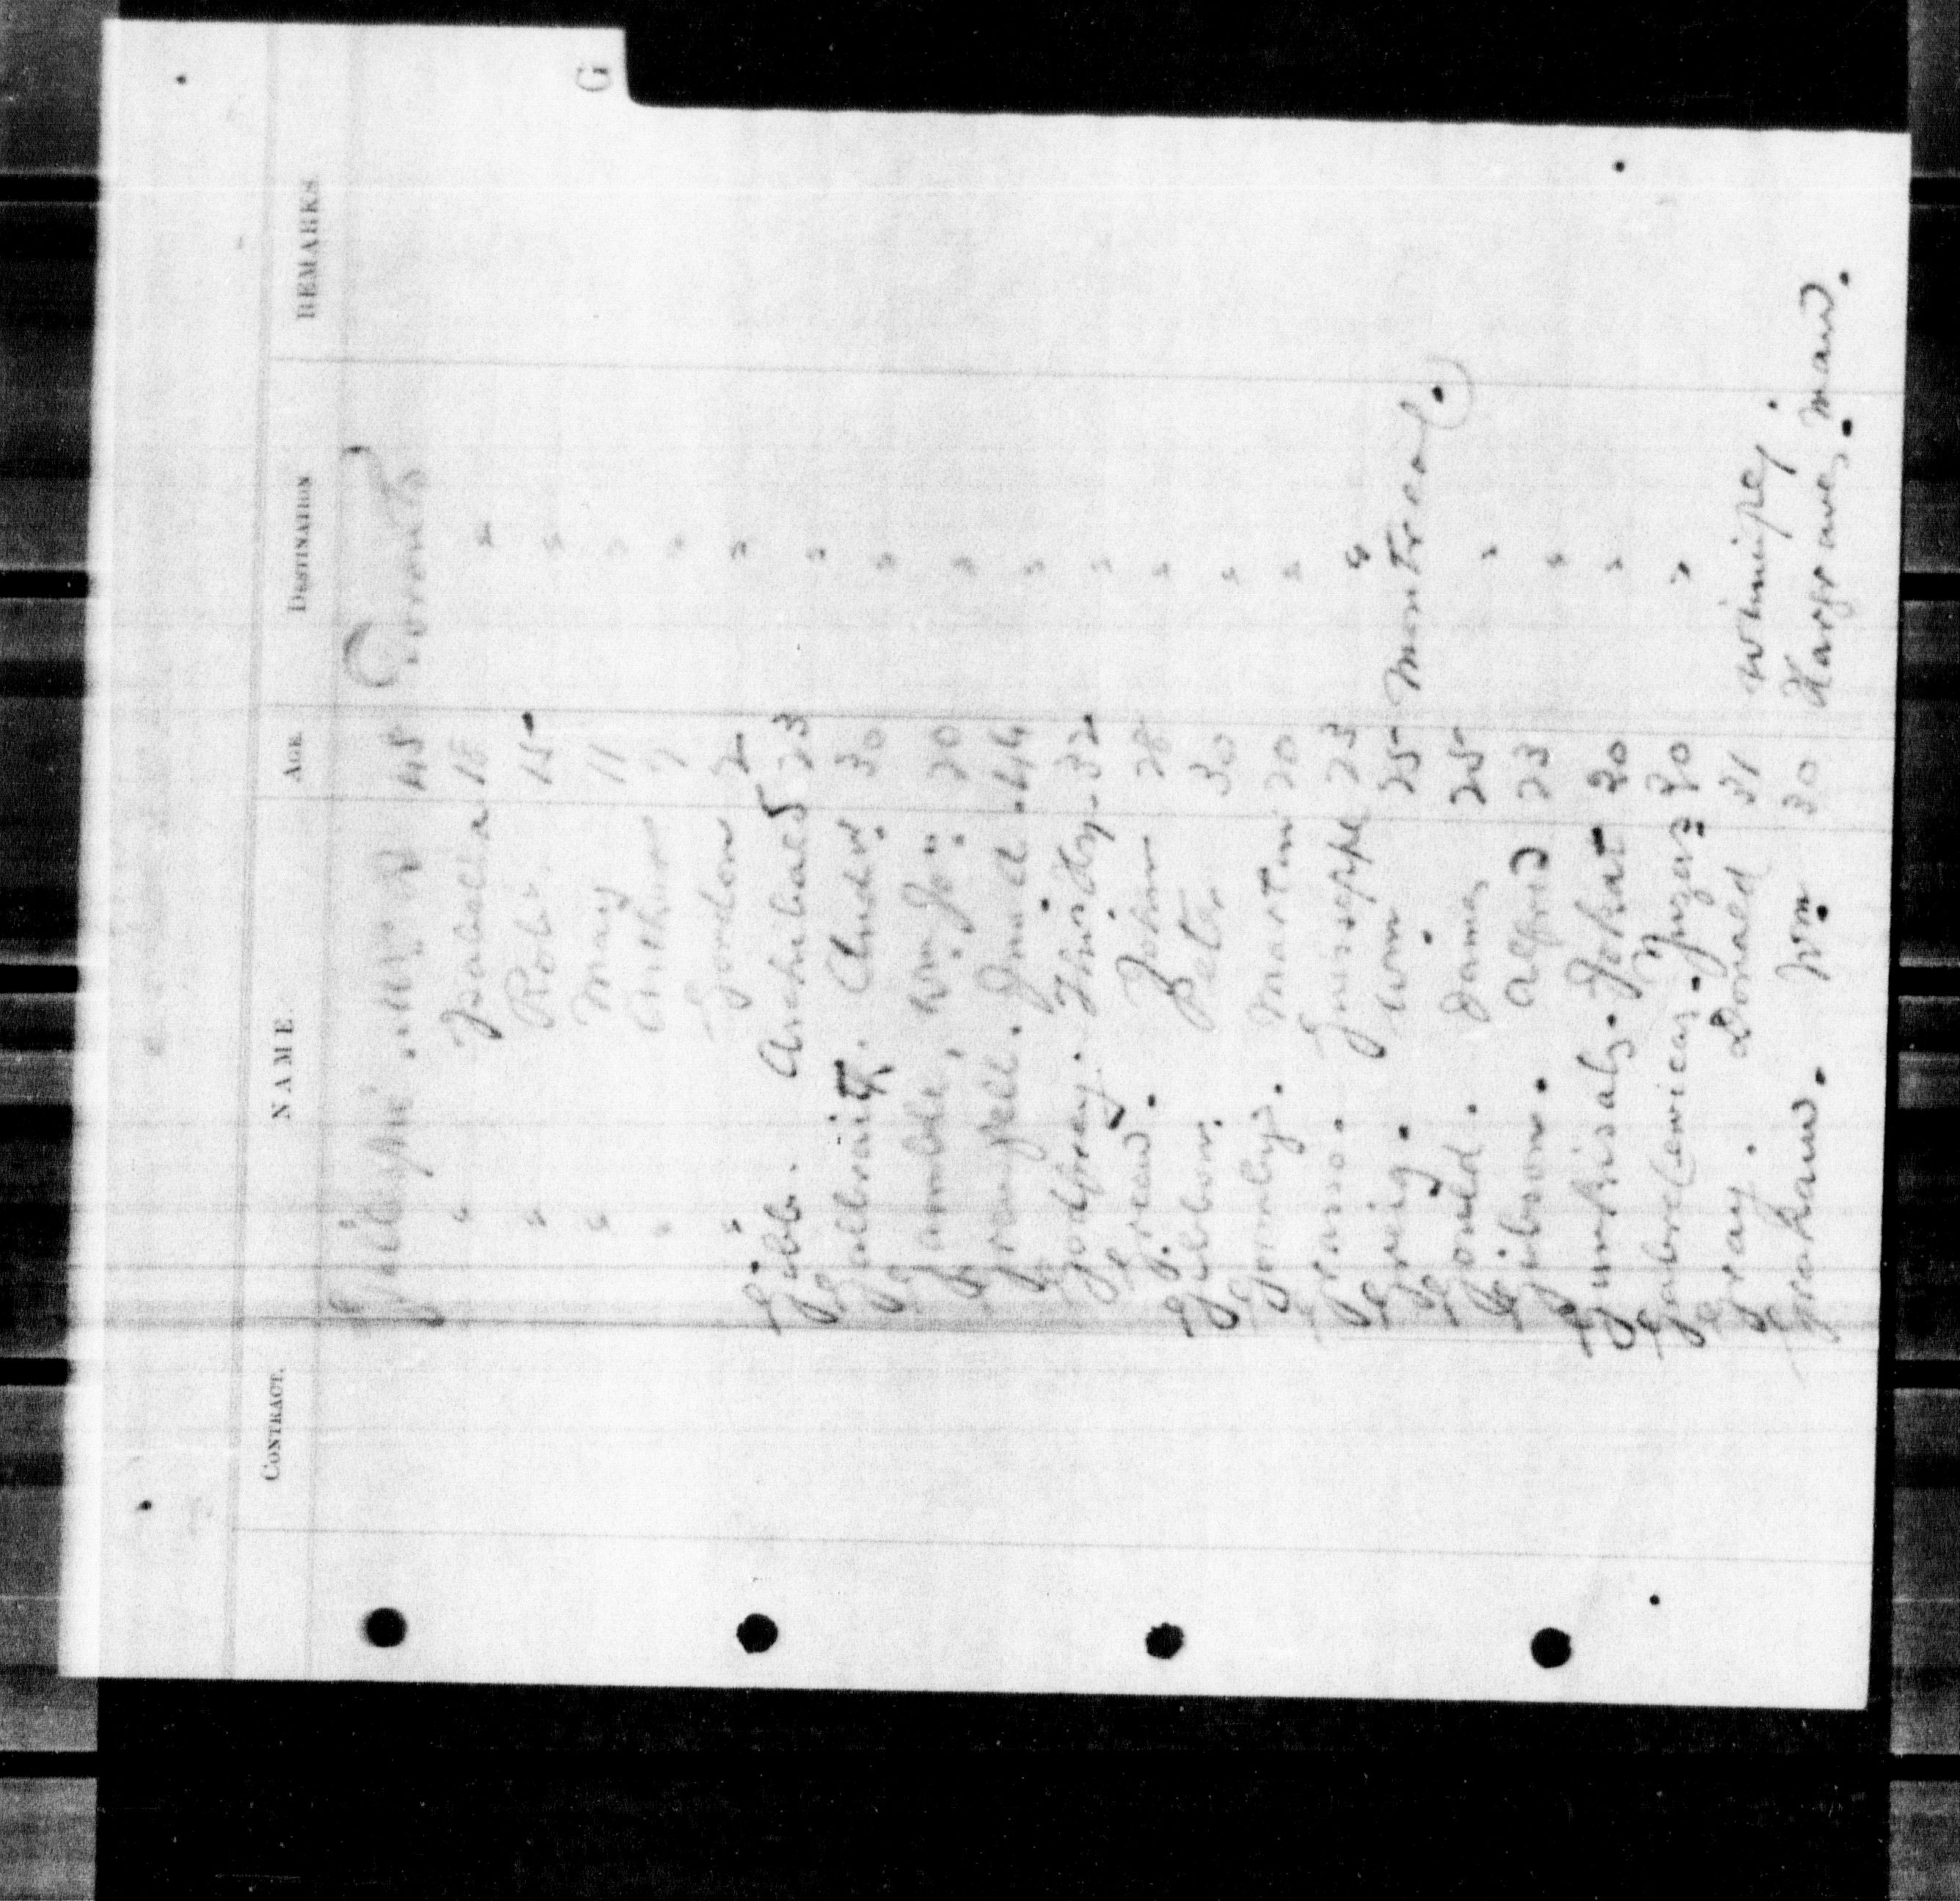 G
CONTRACT. NAME. AGE. DESTINATION REMARKS.
Gillespie 45 Toronto
" Isabella 18 "
" Robt. 15 "
" Mary 11 "
" Arthur 9 "
" Gordon 2 "
Gibb. Archibald 23 "
Galbraith. Andw. 30 "
Gamble, Wm Jo" 20 "
Grenfell. 44 "
Godfrey. Timothy. 32 "
Green. John 28 "
Gibbon. Peter 30 "
Gormly. Martin 20 "
Grasso. Guisseppe 23 "
Greig. Wm 25 Montreal.
Gould. James 25 "
Gibson. Alfred 23 "
30 "
30 "
Gray. Donald 31 Winnipeg.
Graham. Wm. 30 Hargrave, Man.